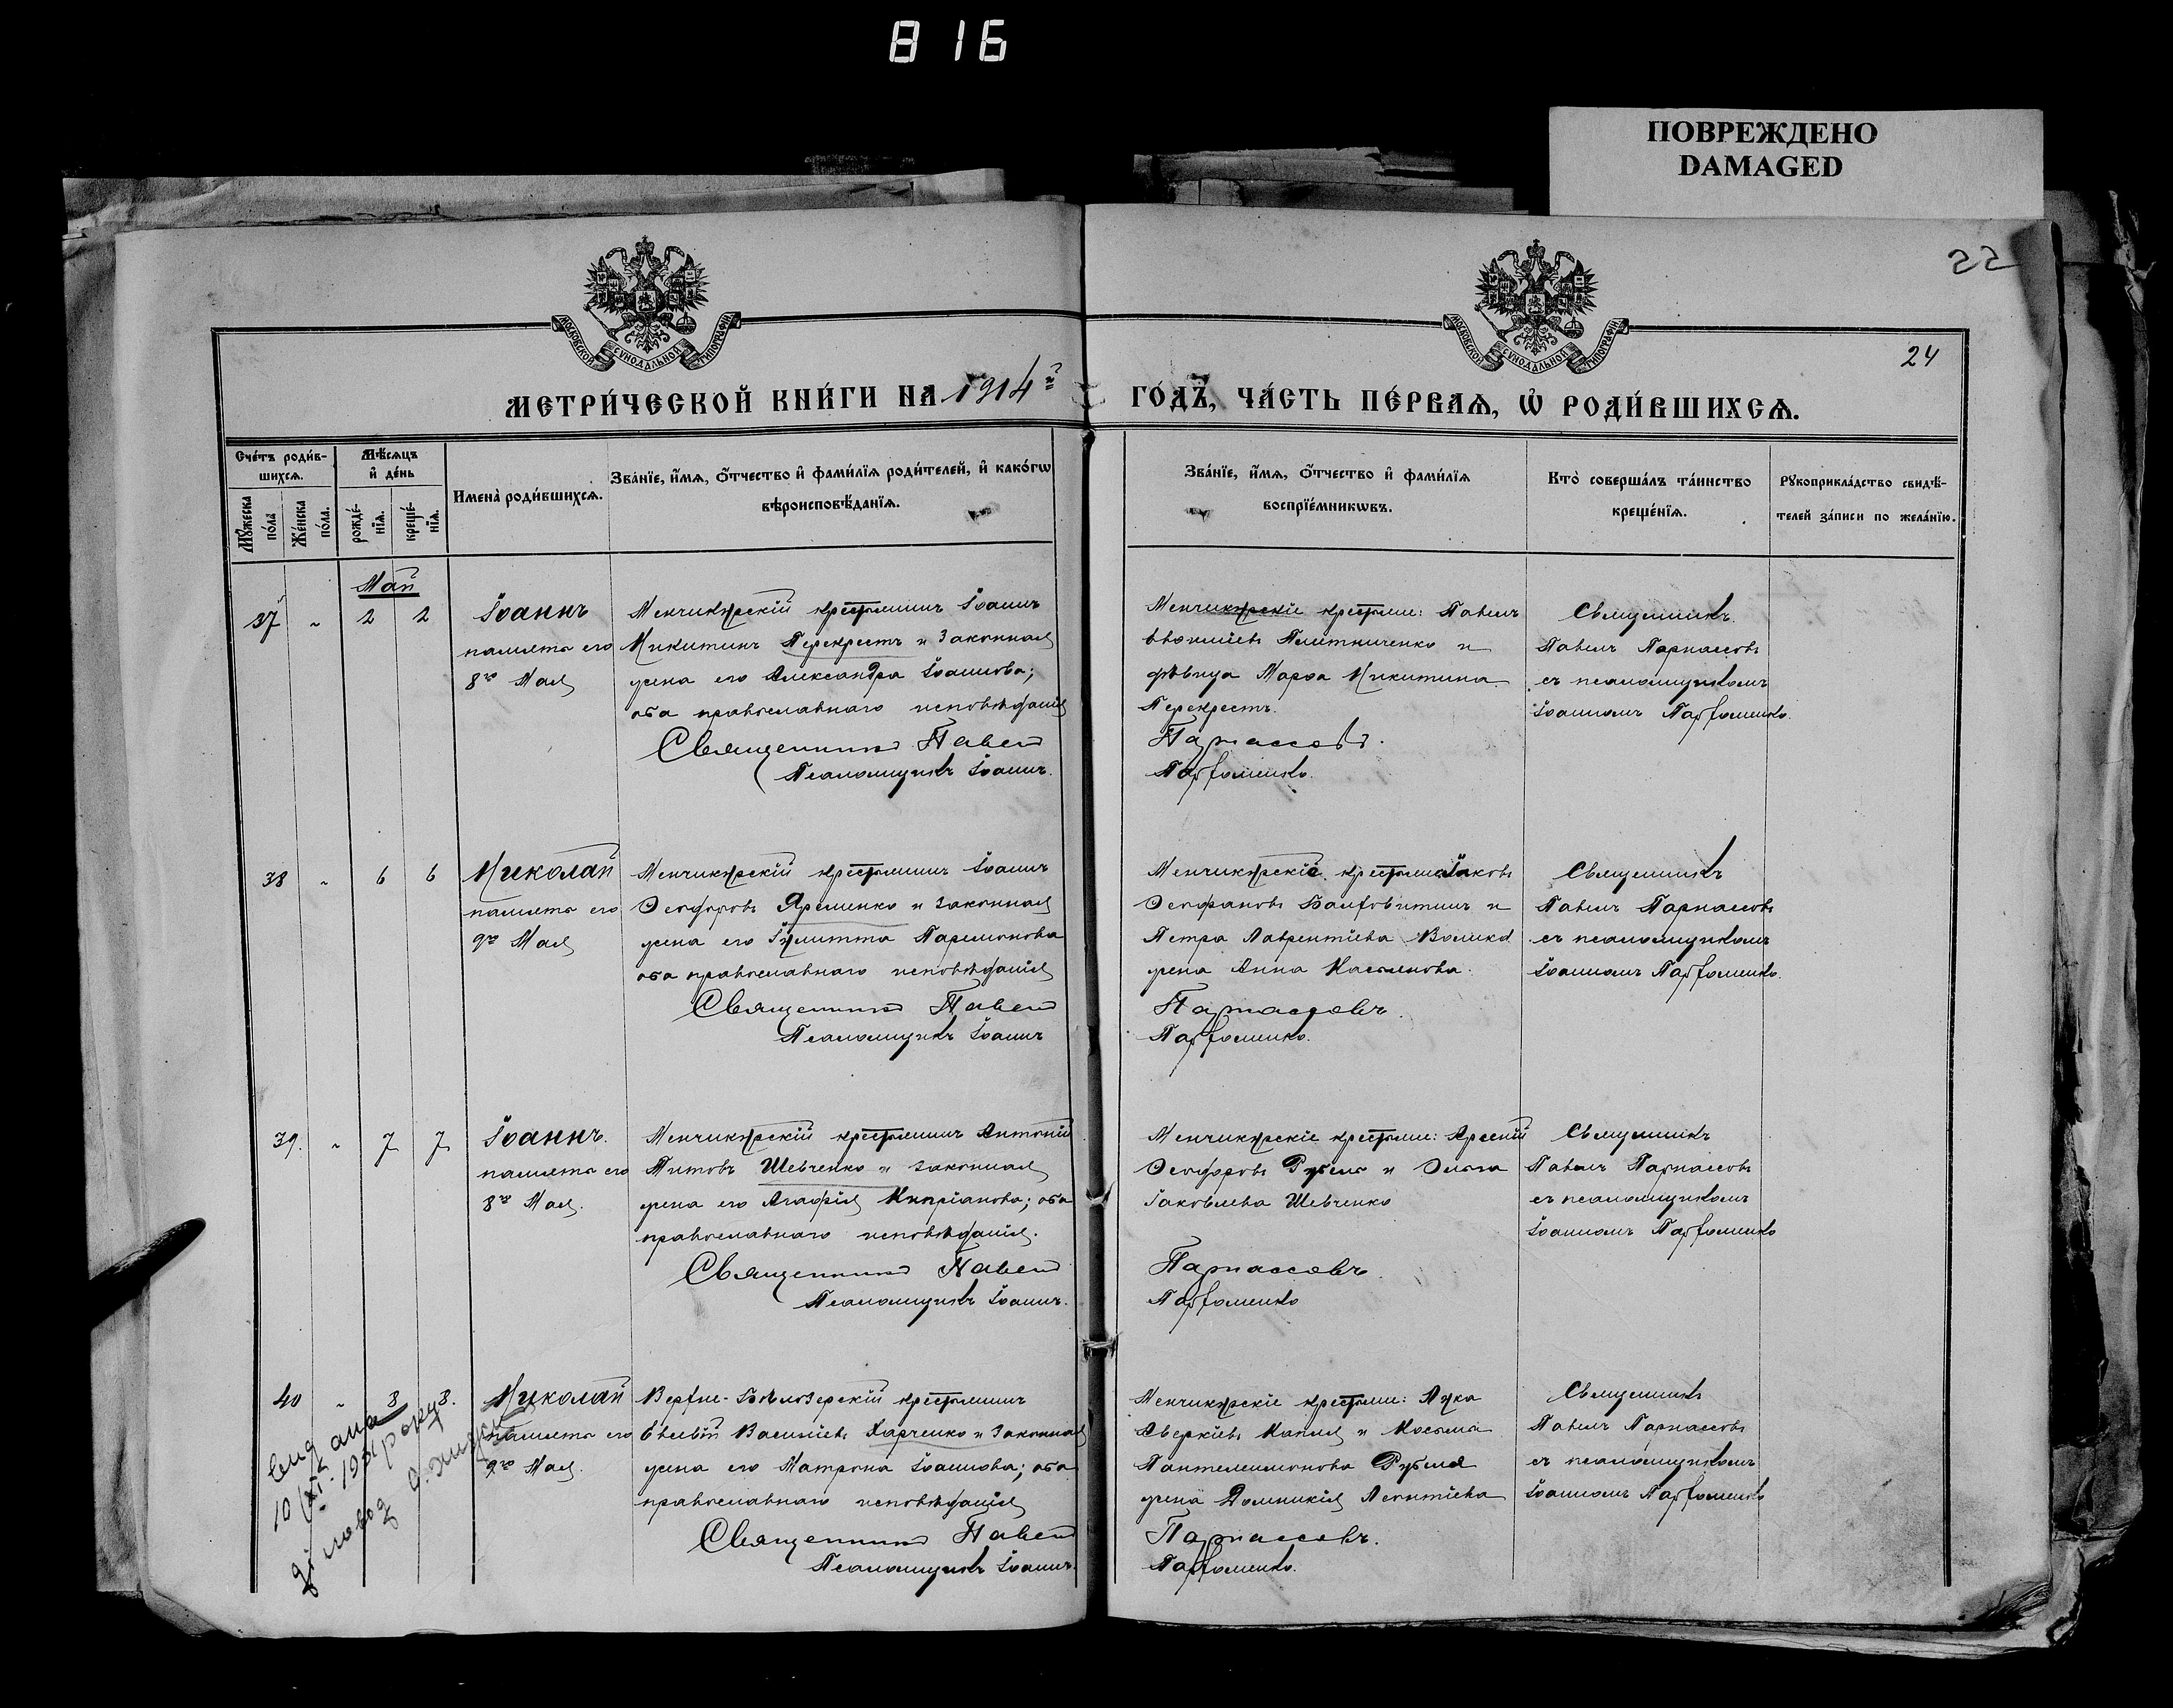 816
ПОВРЕЖДЕНО
DAMAGED
22
24
МОСКОВСКОЙ СУНОДАЛЬНОЙ ТИПОГРАФІИ
МОСКОВСКОЙ СУНОДАЛЬНОЙ ТИПОГРАФІИ
МЕТРИ́ЧЕСКОЙ КНИ́ГИ НА 1914й ГО́ДЪ, ЧА́СТЬ ПЕ́РВАѦ, Ѡ РОДИ́ВШИХСѦ.
Сче́тъ роди́в-
шихсѧ.
Мꙋ́жеска по́ла
Же́нска по́ла.
Мѣ́сѧцъ
и де́нь
рожде́-
нїѧ.
креще́-
нїѧ.
Имена̀ роди́вшихсѧ.
Зва́нїе, и́мѧ, ѻ́тчество и фами́лїѧ роди́телей, и како́гѡ
вѣроисповѣ́данїѧ.
Зва́нїе, и́мѧ, ѻ́тчество и фами́лїѧ
воспрїе́мникѡвъ.
Кто̀ соверша́лъ та́инство
креще́нїѧ.
Рꙋкоприкла́дство свидѣ́-
телей за́писи по жела́нїю.
Май
37 " 2 2
Іоаннъ
память его
8го Мая
Менчикурскій крестьянинъ Іоаннъ
Никитинъ Перекрестъ и законная
жена его Александра Іоаннова;
оба православнаго исповѣданія
Священникъ Павелъ
Псаломщикъ Іоаннъ
Менчикурскіе крестьяне: Павелъ
Плетниченко и
дѣвица Марѳа Никитина
Перекрестъ.
Парнассовъ.
Парфоменко.
Священникъ
Павелъ Парнассовъ
съ псаломщикомъ
Іоанномъ Парфоменко.
38 " 6 6
Николай
память его
9го Мая
Менчикурскій крестьянинъ Іоаннъ
Ѳеодоровъ Яременко и законная
жена его Іулитта Парамонова
оба православнаго исповѣданія
Священникъ Павелъ
Псаломщикъ Іоаннъ
Менчикурскіе крестьяне: Іаковъ
Ѳеофановъ и
Петра Лаврентіева Волика
жена Анна Касьянова.
Парнассовъ.
Парфоменко.
Священникъ
Павелъ Парнассовъ
съ псаломщикомъ
Іоанномъ Парфоменко.
39. " 7 7
Іоаннъ.
память его
8го Мая.
Менчикурскій крестьянинъ Антоній
Титовъ Шевченко и законная
жена его Агафія Кипріанова; оба
православнаго исповѣданія.
Священникъ Павелъ
Псаломщикъ Іоаннъ.
Менчикурскіе крестьяне: Арсеній
Ѳеодоровъ Рубель и Ольга
Іаковлева Шевченко
Парнассовъ.
Парфоменко
Священникъ
Павелъ Парнассовъ
съ псаломщикомъ
Іоанномъ Парфоменко
40 " 8 8.
Николай
память его
9го Мая.
Верхне-Бѣлозерскій крестьянинъ
Евсевій Василіевъ Харченко и законная
жена его Матрона Іоаннова; оба
православнаго исповѣданія
Священникъ Павелъ
Псаломщикъ Іоаннъ.
Менчикурскіе крестьяне: Лука
Аверкіевъ Капля и Косьма
Пантелеимонова Рубля
жена Домникія Леонтіева
Парнассовъ.
Парфоменко.
Священникъ
Павелъ Парнассовъ
съ псаломщикомъ
Іоанномъ Парфоменко
видана
10/XI-1931 року
діловод